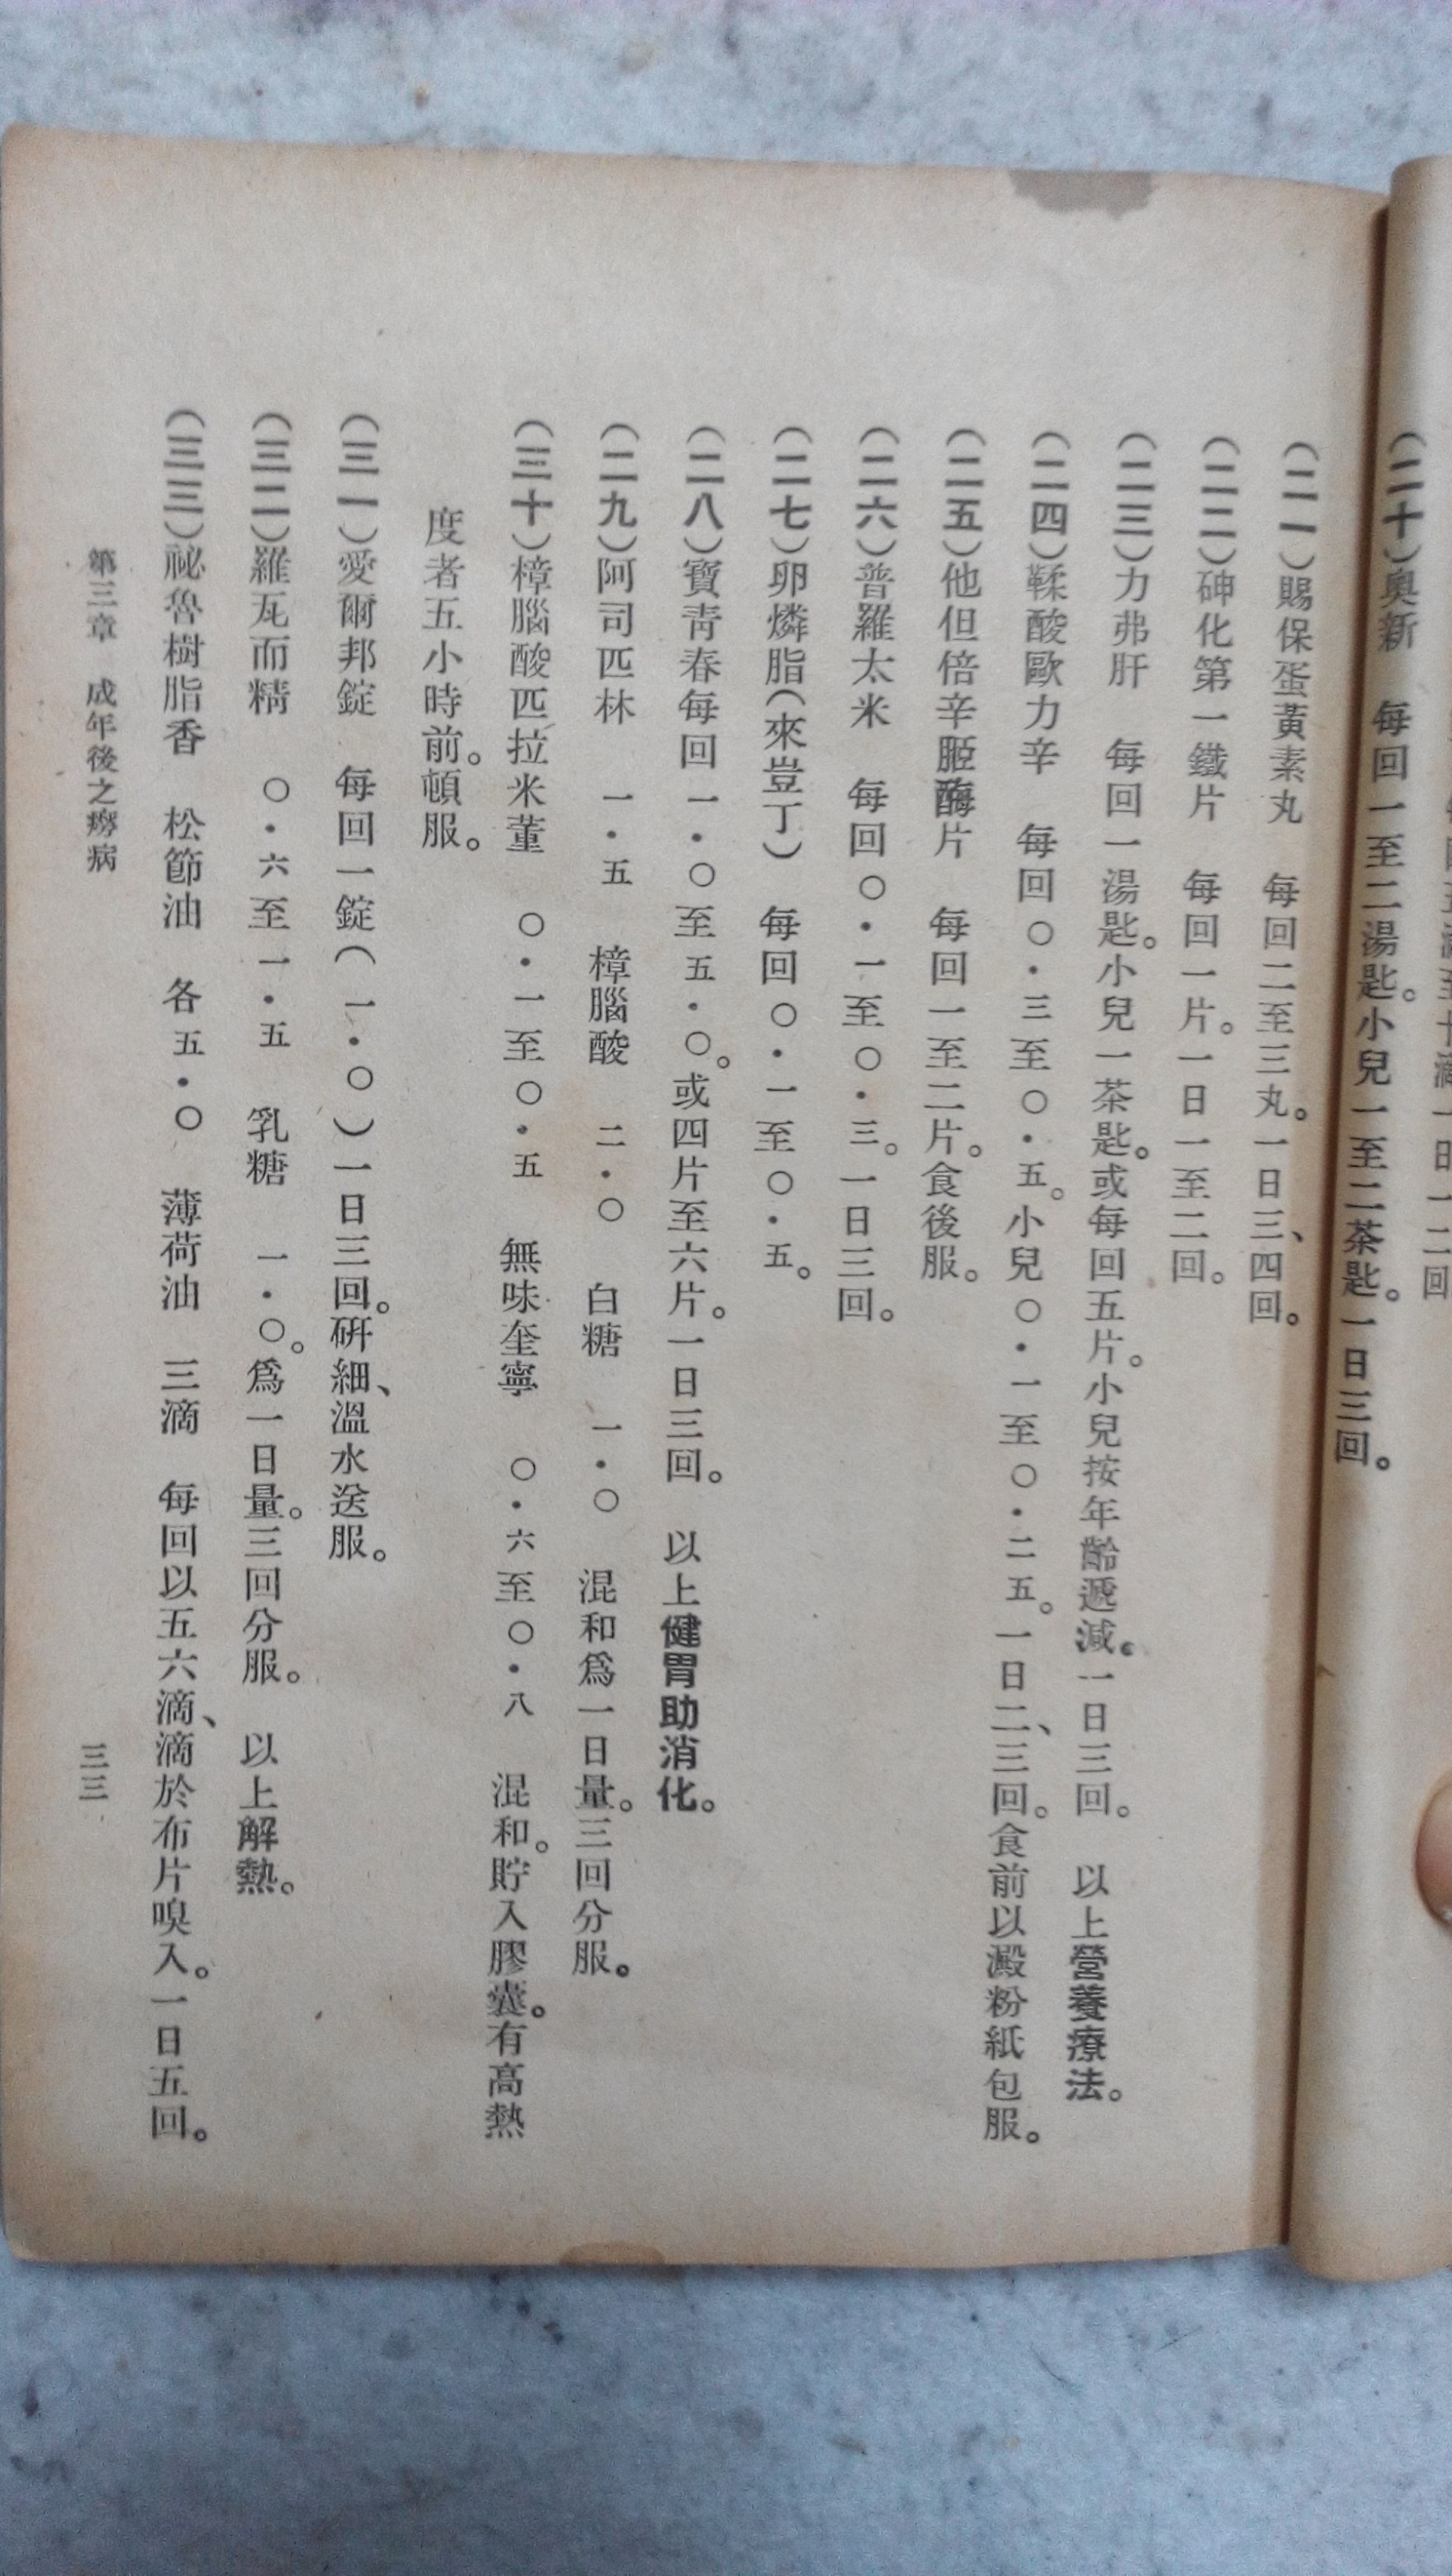 （二十）奧新　每回一至二湯匙。小兒一至二茶匙。一日三回。
（二一）賜保蛋黃素丸　每回二至三丸。一日三、四回。
（二二）砷化第一鐵片　每回一片。一日一至二回。
（二三）力弗肝　每回一湯匙。小兒一茶匙。或每回五片。小兒按年齡遞減。一日三回。　以上營養療法。
（二四）鞣酸歐力辛　每回〇・三至〇・五。小兒〇・一至〇・二五。一日二、三回。食前以澱粉紙包服。
（二五）他但倍辛胚酶片　每回一至二片。食後服。
（二六）普羅太米　每回〇・一至〇・三。一日三回。
（二七）卵燐脂（來豈丁）　每回〇・一至〇・五。
（二八）寶靑春每回一・〇至五・〇。或四片至六片。一日三回。　以上健胃助消化。
（二九）阿司匹林　一・五　樟腦酸　二・〇　白糖　一・〇　混和爲一日量。三回分服。
（三十）樟腦酸匹拉米董　〇・一至〇・五　無味奎寧　〇・六至〇・八　混和。貯入膠囊。有高熱
度者五小時前。頓服。
（三一）愛爾邦錠　每回一錠（一・〇）一日三回。硏細、溫水送服。
（三二）羅瓦而精　〇・六至一・五　乳糖　一・〇。爲一日量。三回分服。　以上解熱。
（三三）祕魯樹脂香　松節油　各五・〇　薄荷油　三滴　每回以五六滴、滴於布片嗅入。一日五回。
第三章　成年後之癆病　三三